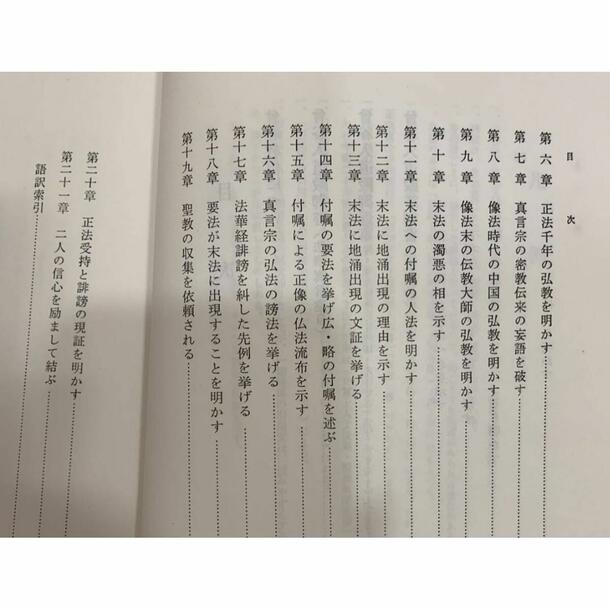 目次
第六章 正法千年の弘教を明かす
第七章 真言宗の密教伝来の妄語を破す
第八章 像法時代の中国の弘教を明かす
第九章 像法末の伝教大師の弘教を明かす
第十章 末法の濁悪の相を示す
第十一章 末法への付嘱の人法を明かす
第十二章 末法に地涌出現の理由を示す
第十三章 末法に地涌出現の文証を挙げる
第十四章 付嘱の要法を挙げ広・略の付嘱を述ぶ
第十五章 付嘱による正像の仏法流布を示す
第十六章 真言宗の弘法の謗法を挙げる
第十七章 法華経誹謗を糾した先例を挙げる
第十八章 要法が末法に出現することを明かす
第十九章 聖教の収集を依頼される
第二十章 正法受持と誹謗の現証を明かす
第二十一章 二人の信心を励まして結ぶ
語訳索引